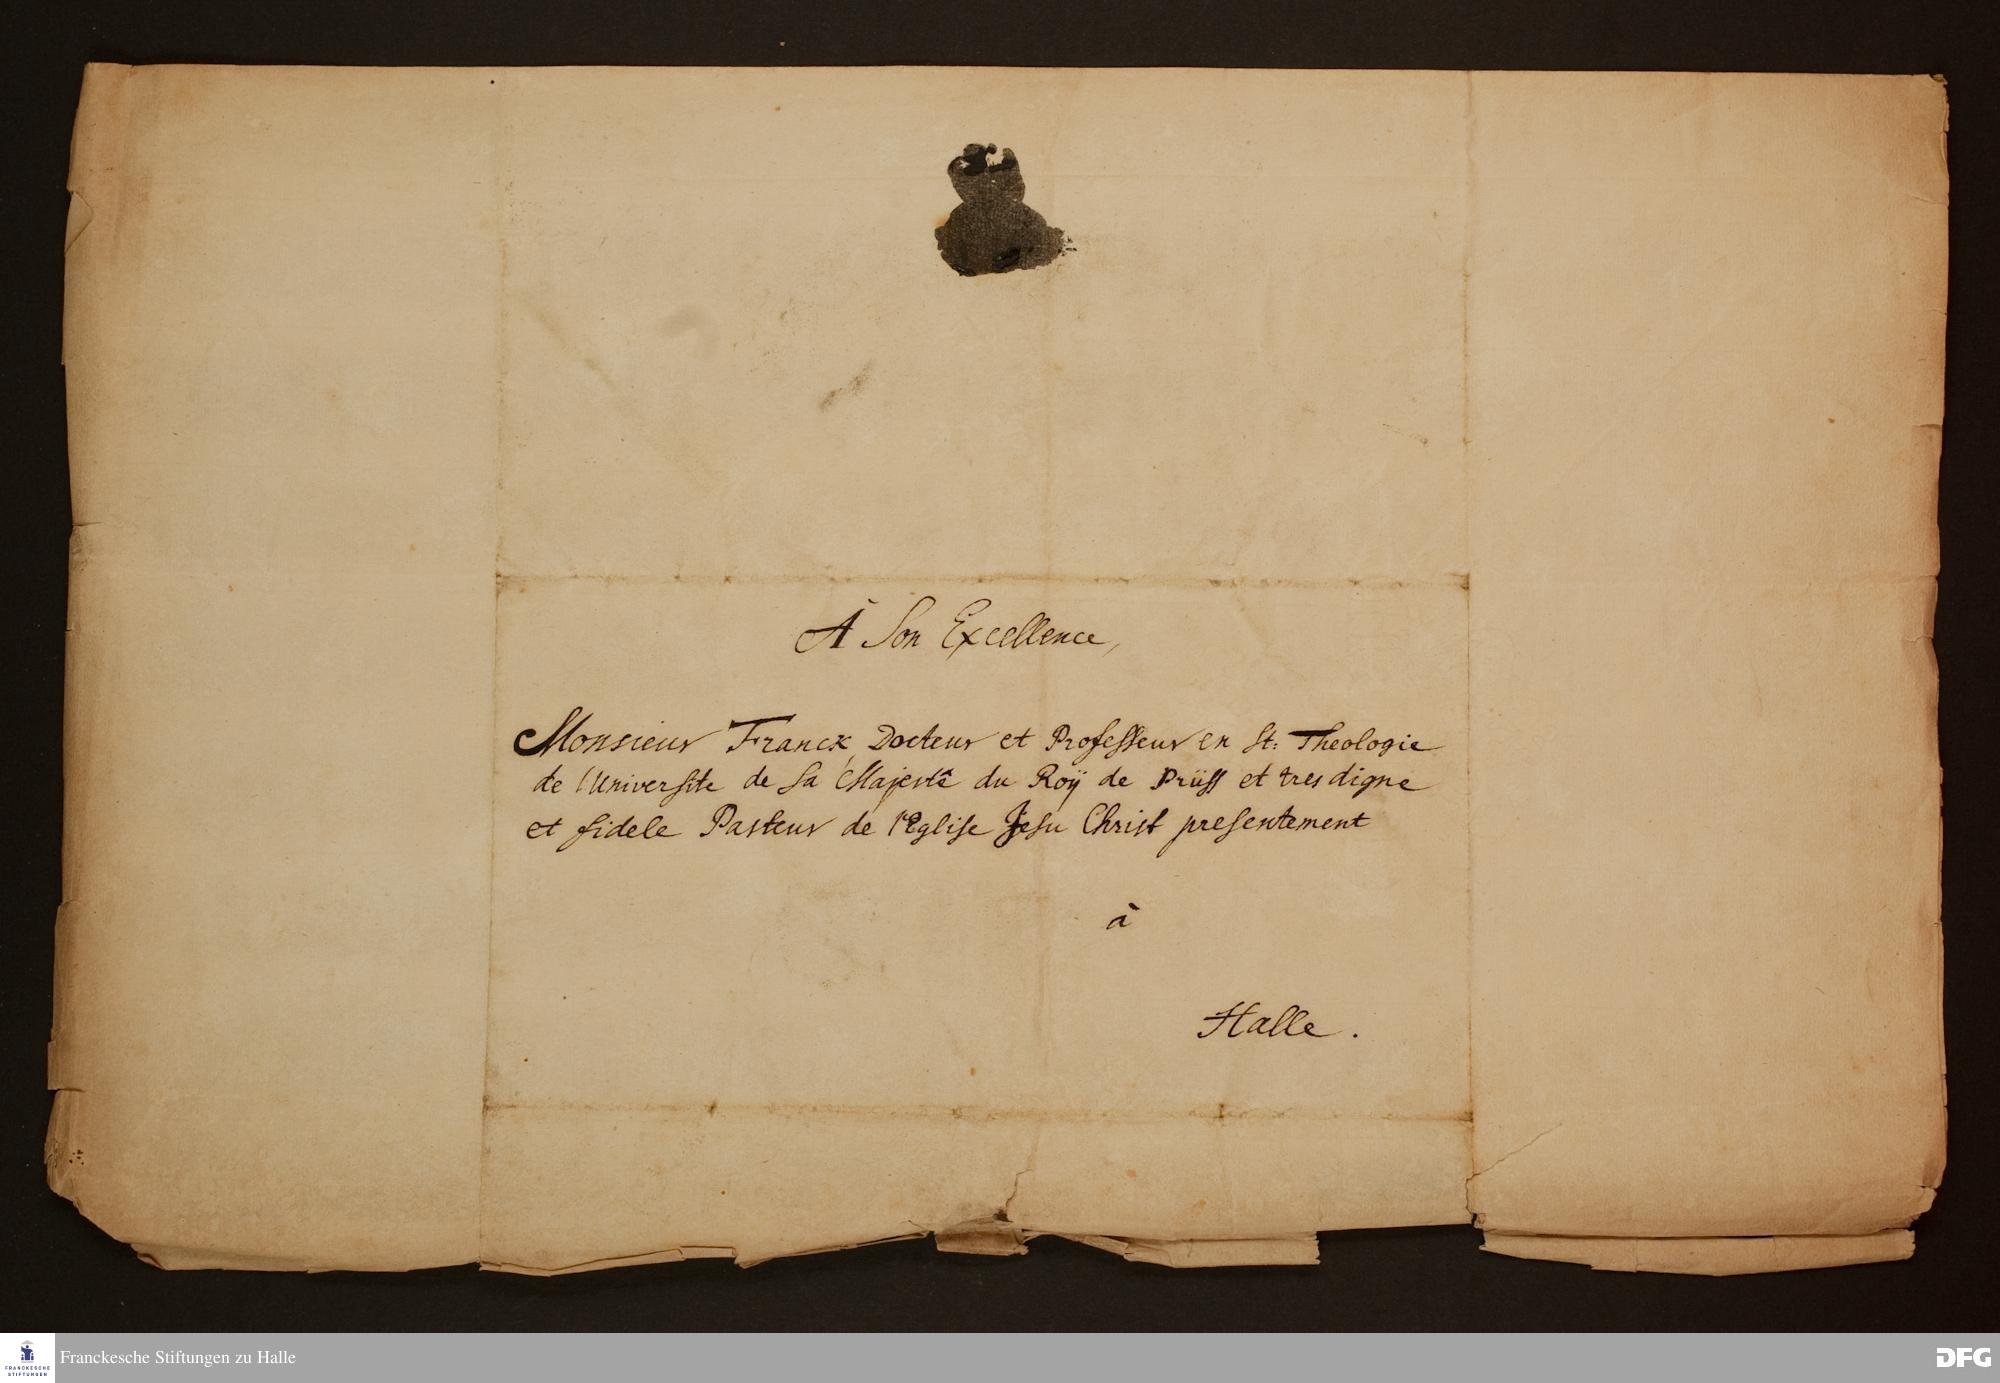 À Son Excellence,
Monsieur Franck Docteur et Professeur en St: Theologie
de l'Universite de Sa Majestê du Roÿ de Prüss et tres digne
et fidele Pasteur de l'Eglise Jesu Christ presentement
à
Halle.
FRANCKESCHE
STIFTUNGEN
Franckesche Stiftungen zu Halle
DFG